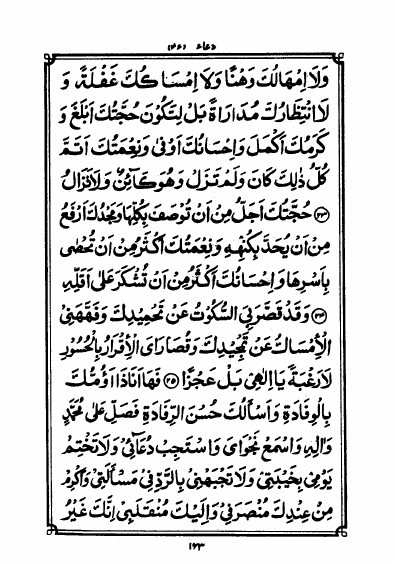 دعاء (۴۶)
وَلَا اِمْهَالُكَ وَهْنًا وَلَا اِمْسَاكُكَ غَفْلَةً، وَ
لَا انْتِظَارُكَ مُدَارَاةً بَلْ لِتَكُوْنَ حُجَّتُكَ اَبْلَغَ وَ
كَرَمُكَ اَكْمَلَ وَاِحْسَانُكَ اَوْفٰى وَنِعْمَتُكَ اَتَمَّ
كُلُّ ذٰلِكَ كَانَ وَلَمْ تَزَلْ وَهُوَ كَآئِنٌ وَلَا تَزَالُ
(۲۳) حُجَّتُكَ اَجَلُّ مِنْ اَنْ تُوْصَفَ بِكُلِّهَا وَمَجْدُكَ اَرْفَعُ
مِنْ اَنْ يُحَدَّ بِكُنْهِهٖ وَنِعْمَتُكَ اَكْثَرُ مِنْ اَنْ تُحْصٰى
بِاَسْرِهَا وَاِحْسَانُكَ اَكْثَرُ مِنْ اَنْ تُشْكَرَ عَلٰى اَقَلِّهٖ
(۲۴) وَقَدْ قَصَّرَ بِيَ السُّكُوْتُ عَنْ تَحْمِيْدِكَ وَفَهَّهَنِيَ
الْاِمْسَاكُ عَنْ تَمْجِيْدِكَ وَقُصَارَايَ الْاِقْرَارُ بِالْحُسُوْرِ
لَا رَغْبَةً يَا اِلٰهِيْ بَلْ عَجْزًا (۲۵) فَهَا اَنَا ذَا اَؤُمُّكَ
بِالْوِفَادَةِ وَاَسْاَلُكَ حُسْنَ الرِّفَادَةِ فَصَلِّ عَلٰى مُحَمَّدٍ
وَاٰلِهٖ وَاسْمَعْ نَجْوَايَ وَاسْتَجِبْ دُعَآئِيْ وَلَا تَخْتِمْ
يَوْمِيْ بِخَيْبَتِيْ وَلَا تَجْبَهْنِيْ بِالرَّدِّ فِيْ مَسْاَلَتِيْ وَاَكْرِمْ
مِنْ عِنْدِكَ مُنْصَرَفِيْ وَاِلَيْكَ مُنْقَلَبِيْ اِنَّكَ غَيْرُ
۱۹۳